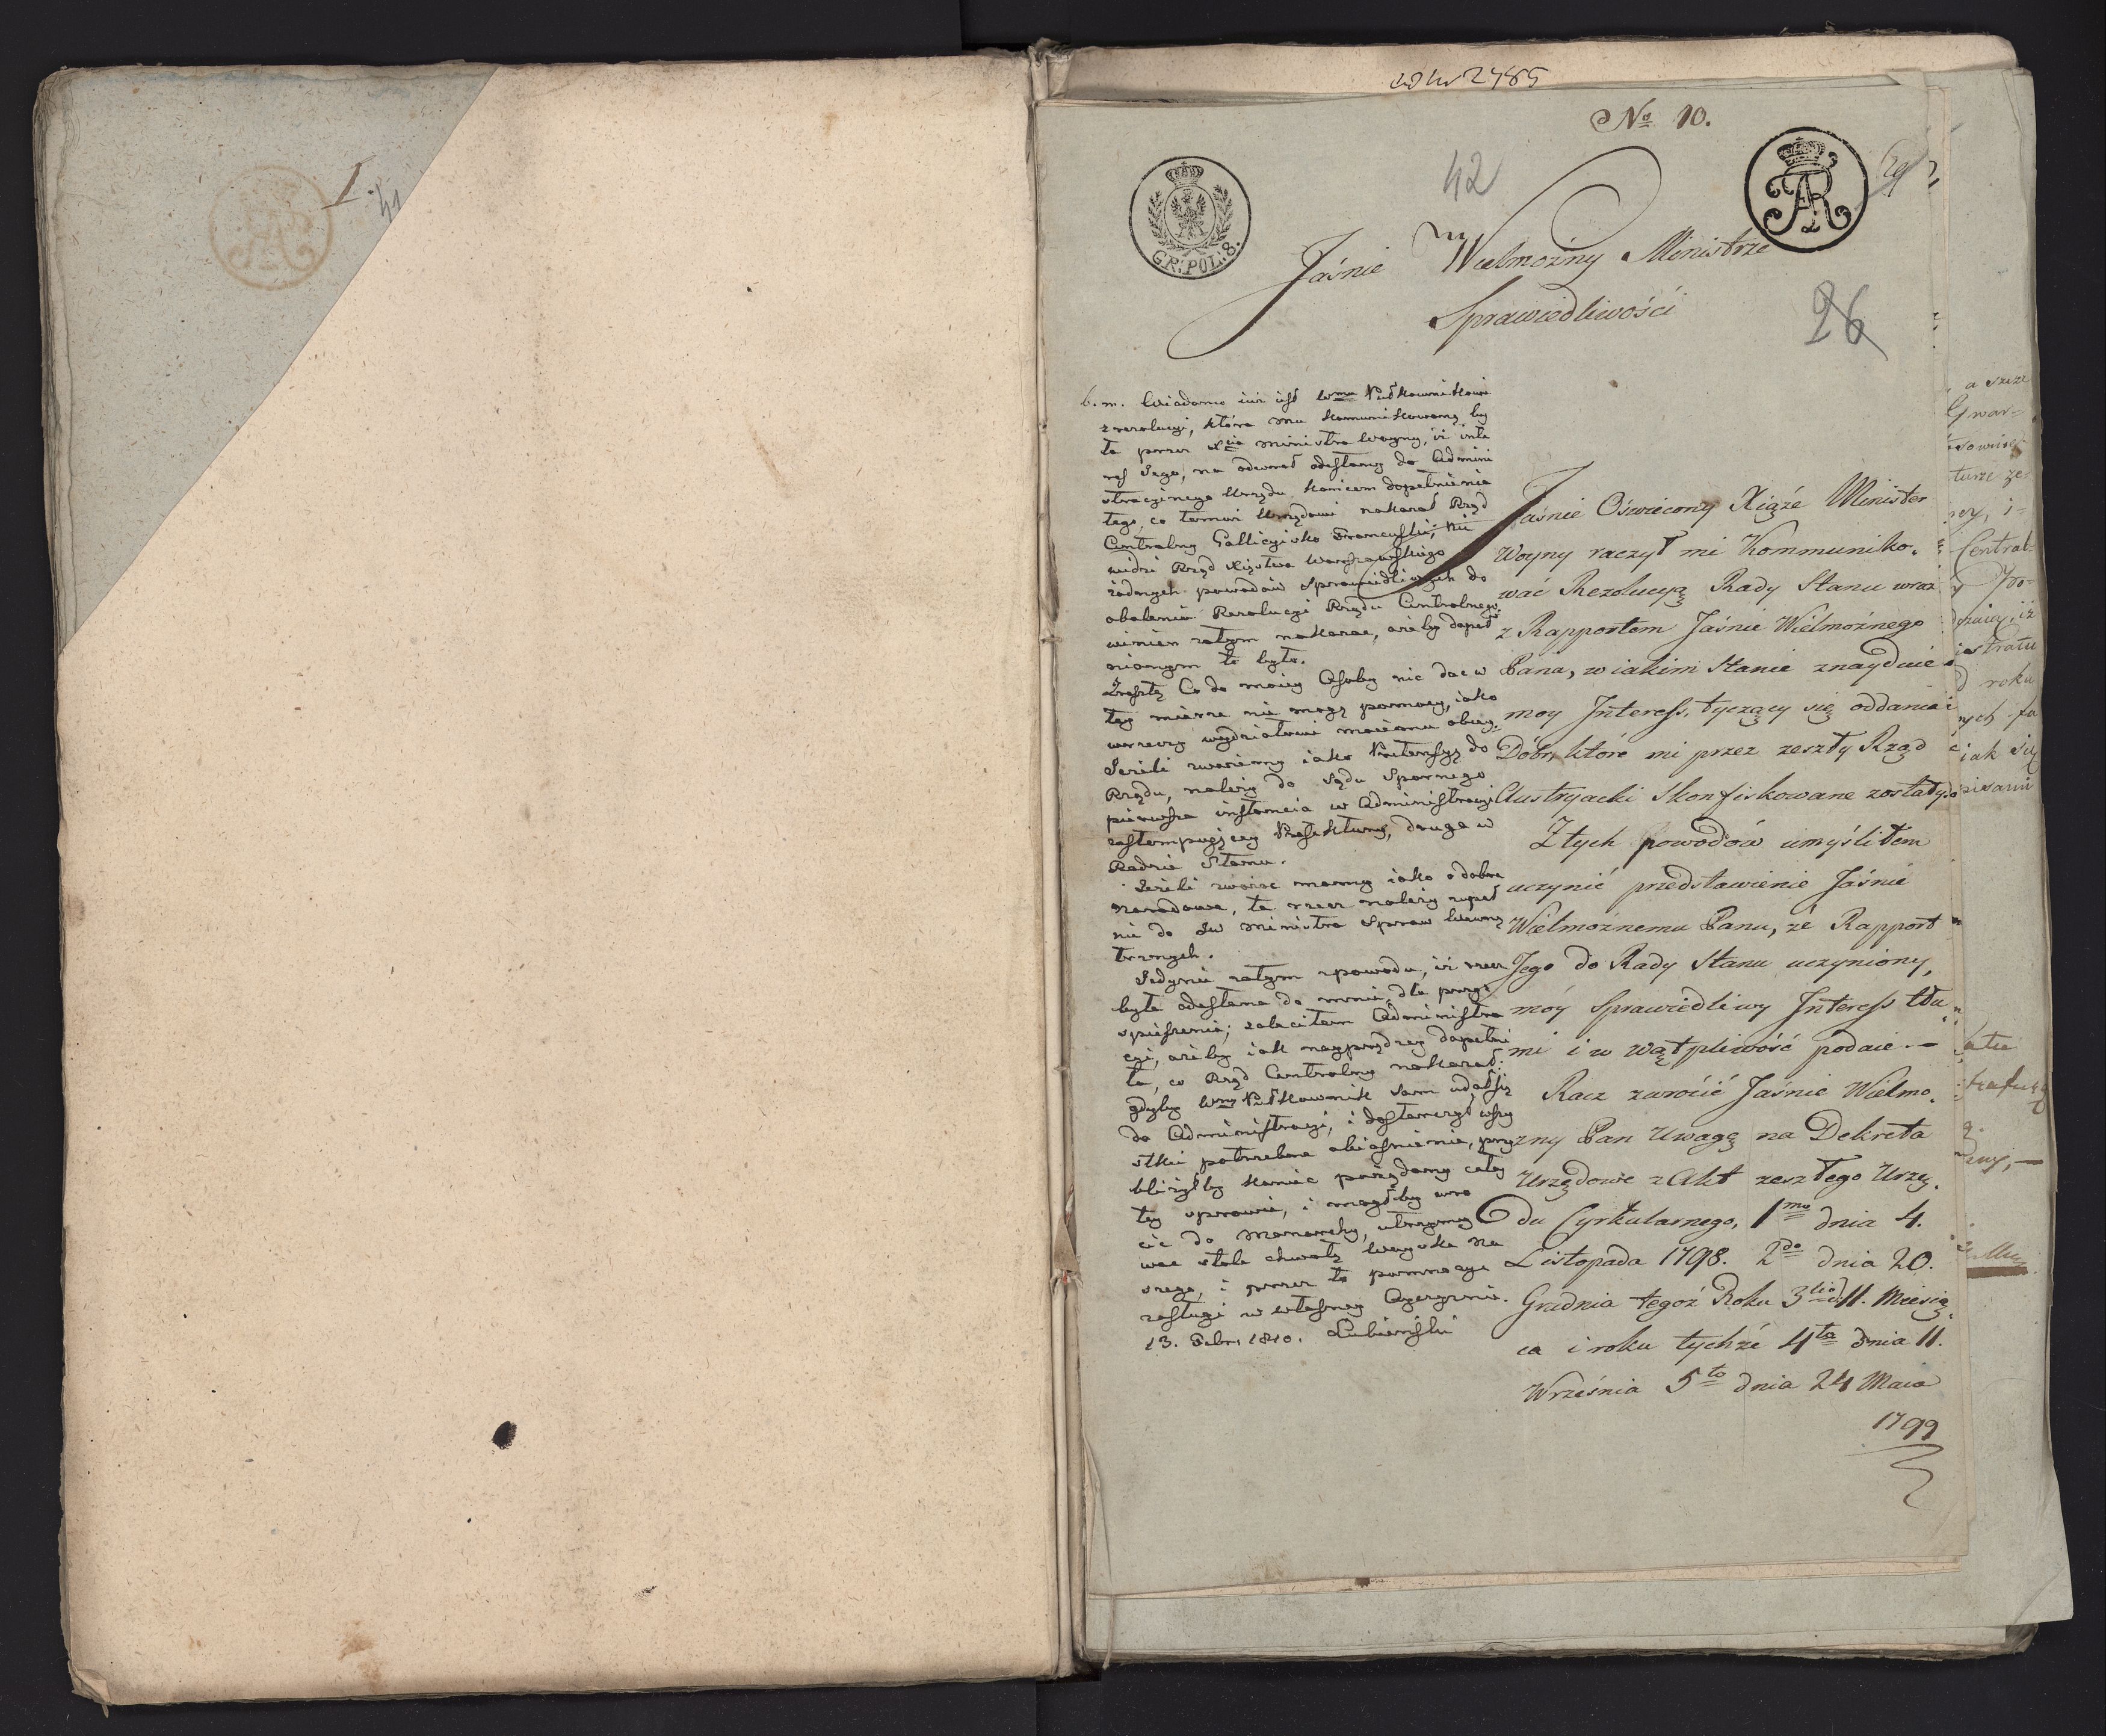 I.
41
No 10.
42
GR: POL: 8.
Jaśnie Wielmożny Ministrze
Sprawiedliwości
26
b. m. Wiadomo iuż iest Wmu Pułkownikowi
z rezolucyi, która mu kommunikowaną by
ła przez Xcia Ministra Woyny, iż inte
res Jego, na odwrót odesłany do Admini
stracyinego Urzędu końcem dopełnienia
tego, co temuż Urzędowi nakazał Rząd
Centralny Gallicyisko Francuski; Nie
widzi Rząd Xięstwa Warszawskiego
żadnych powodów sprawiedliwych do
obalenia Rezolucyi Rządu Centralnego,
winien zatym nakazać, ażeby dopeł
nionym to było.
Zresztą Co do moiey Osoby nie dać w
tey mierze nie mogę pomocy, iako
w rzeczy wydziałowi moiemu obcey.
Jeżeli zważemy iako Pretensyą do
Rządu, należy do Sądu Spornego
pierwsza instancia w Administracyi
zastempuiącey Prefekturę, druga w
Radzie Stanu.
Jeżeli zważać mamy iako o dobra
narodowe, ta rzecz należy zupeł
nie do JW Ministra Spraw Wewnę
trznych.
Jedynie zatym z powodu, iż rzecz
była odesłana do mnie, dla przy
spieszenia; zaleciłem Administra
cyi, ażeby iak nayprędzey dopełni
ła, co Rząd Centralny nakazał:
gdyby Wny Pułkownik sam udał się
do Administracyi, i dostarczył wszy
stkie potrzebne obiaśnienia, przy
bliżyłby koniec pożądany całey
tey sprawie, i mógłby wró
cić do Monarchy, utrzymy
wać stale chwałę Woyska na
szego, i przez to pomnażać
zasługi w własney Oyczyznie.
13. Febr. 1810. Łubieński
Jaśnie Oświecony Xiąże Minister
Woyny raczył mi Kommuniko,
wać Rezolucyą Rady Stanu wraz
z Rapportem Jaśnie Wielmożnego
Pana, w iakim Stanie znayduie
moy Interess, tyczący się oddania
Dóbr, które mi przez zeszły Rząd
Austryacki Skonfiskowane zostały.
Z tych powodów umyśliłem
uczynić przedstawienie Jaśnie
Wielmożnemu Panu, że Rapport
Jego do Rady Stanu uczyniony,
móy Sprawiedliwy Interess tłu,
mi i w Wątpliwość podaie. —
Racz zwrócić Jaśnie Wielmo,
żny Pan Uwagę na Dekreta
Urzędowe z Akt zeszłego Urzę,
du Cyrkularnego, 1mo dnia 4.
Listopada 1798. 2do dnia 20.
Grudnia tegoż Roku 3tio d. 11. Miesią,
ca i roku tychże 4to dnia 11.
Września 5to dnia 24 Maia
1799